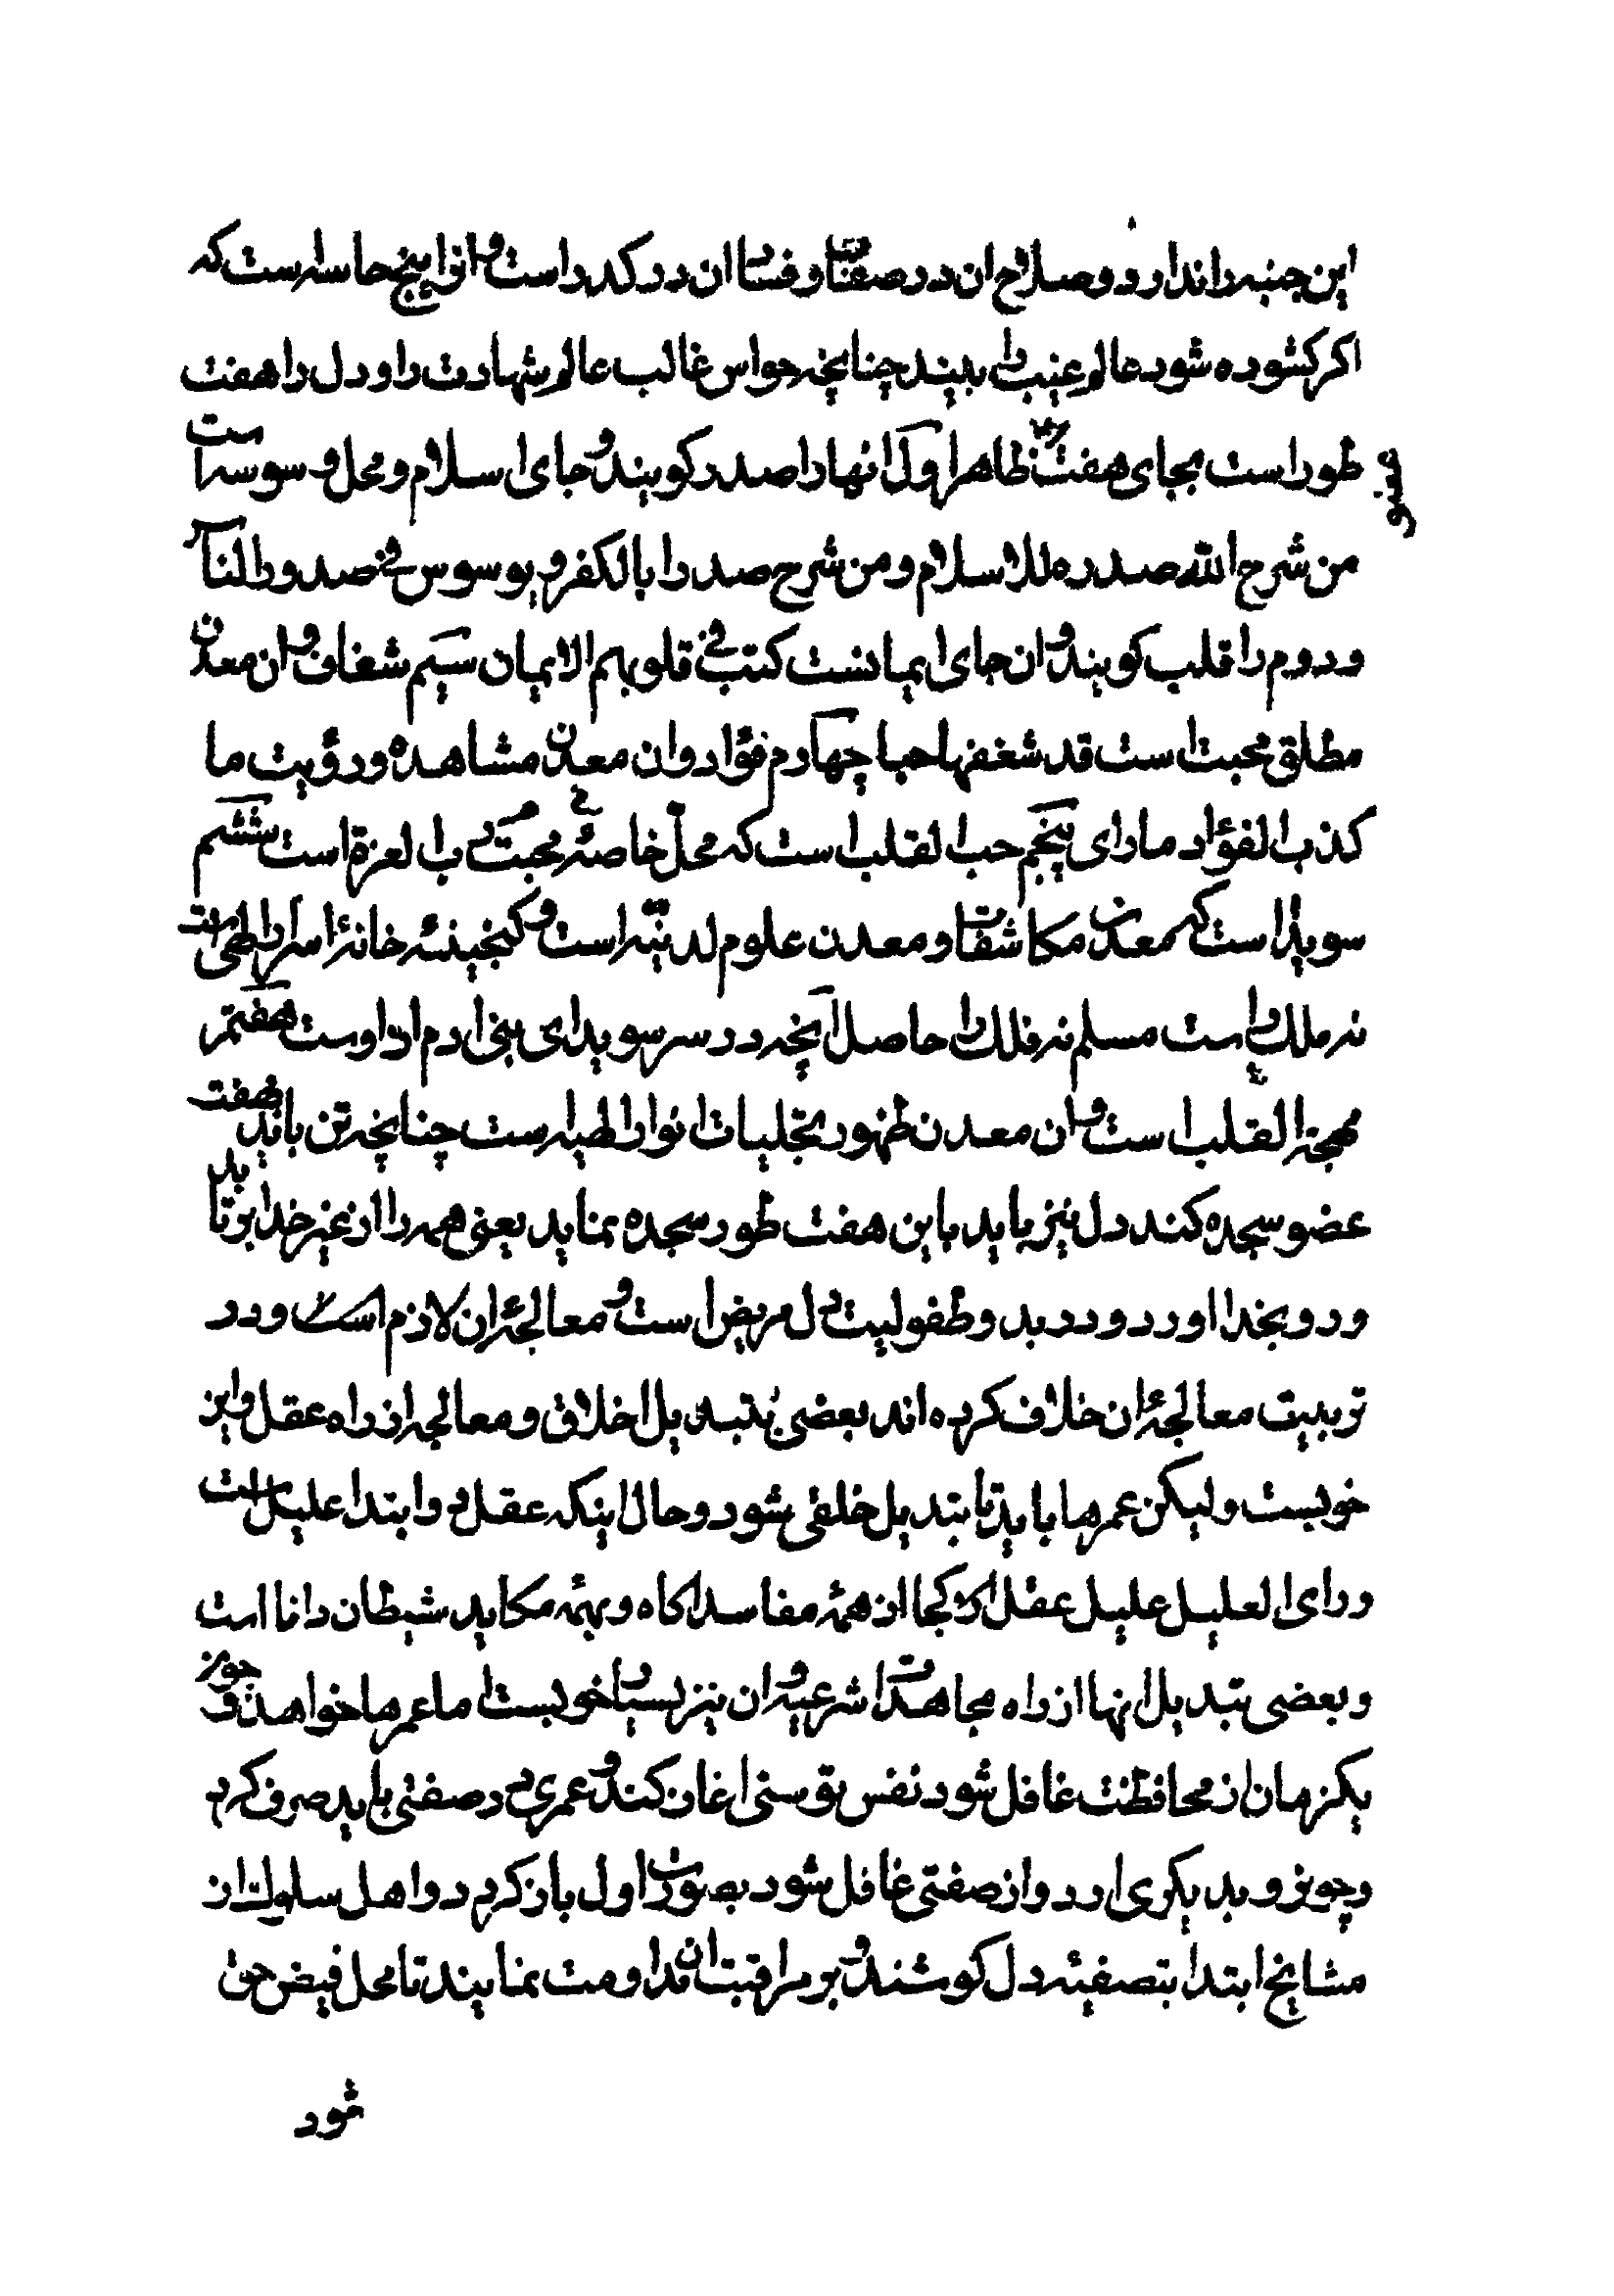 این جنبه را ندارد و صلاح ان در صفتا و فساد ان در کدر است و انوا پنج حاسه است که
اکر کشوده شود عالم غیب را بیند چنانچه حواس غالب عالم شهادت را و دل را هفت
طور است بجای هفت عضو ظاهر اول انها را صدر کویند و جای اسلام و محل وسوسه است
من شرح الله صدره للاسلام و من شرح صدرا بالکفر و یوسوس فی صدور الناس
و دوم را قلب کویند و ان جای ایمانست کتب فی قلوبهم الایمان سیم شغاف و ان معدن
مطلق محبت است قد شغفها حبا چهارم فؤاد و ان معدن مشاهده و رؤیت ما
کذب الفؤاد ما رای پنجم حب القلب است که محل خاصهٔ محبت رب العزة است ششم
سویدا است که معدن مکاشفات و معدن علوم لدنیه است و کنجینهٔ خانهٔ اسرار الهی است
نه ملک را است مسلم نه فلک را حاصل انچه در سر سویدای بنی ادم از اوست هفتم
مهجة القلب است و ان معدن ظهور تجلیات انوار الهیه است چنانچه تن باید هفت
عضو سجده کند دل نیز باید باین هفت طور سجده نماید یعنی همه را از غیر خدا بر تابد
و رو بخدا اورد و در بدو طفولیت دل مریض است و معالجهٔ ان لازم است و در
تربیت معالجهٔ ان خلاف کرده اند بعضی بتبدیل اخلاق و معالجه از راه عقل و این
خوبست ولیکن عمرها باید تا تبدیل خلقی شود و حال اینکه عقل در ابتدا علیل است
و رای العلیل علیل عقل از کجا از همهٔ مفاسد اکاه و بهمه مکاید شیطان دانا است
و بعضی تبدیل انها از راه مجاهدات شرعیه و ان نیز بسیار خوبست اما عمرها خواهد و چون
یکزمان از محافظت غافل شود نفس توسنی اغاز کند و عمری در صفتی باید صرف کرد
و چون رو بدیکری ارد و از صفتی غافل شود بصورت اول باز کردد و اهل سلوک از
مشایخ ابتدا بتصفیهٔ دل کوشند و بر مراقبت ان مداومت نمایند تا محل فیض حق
شود